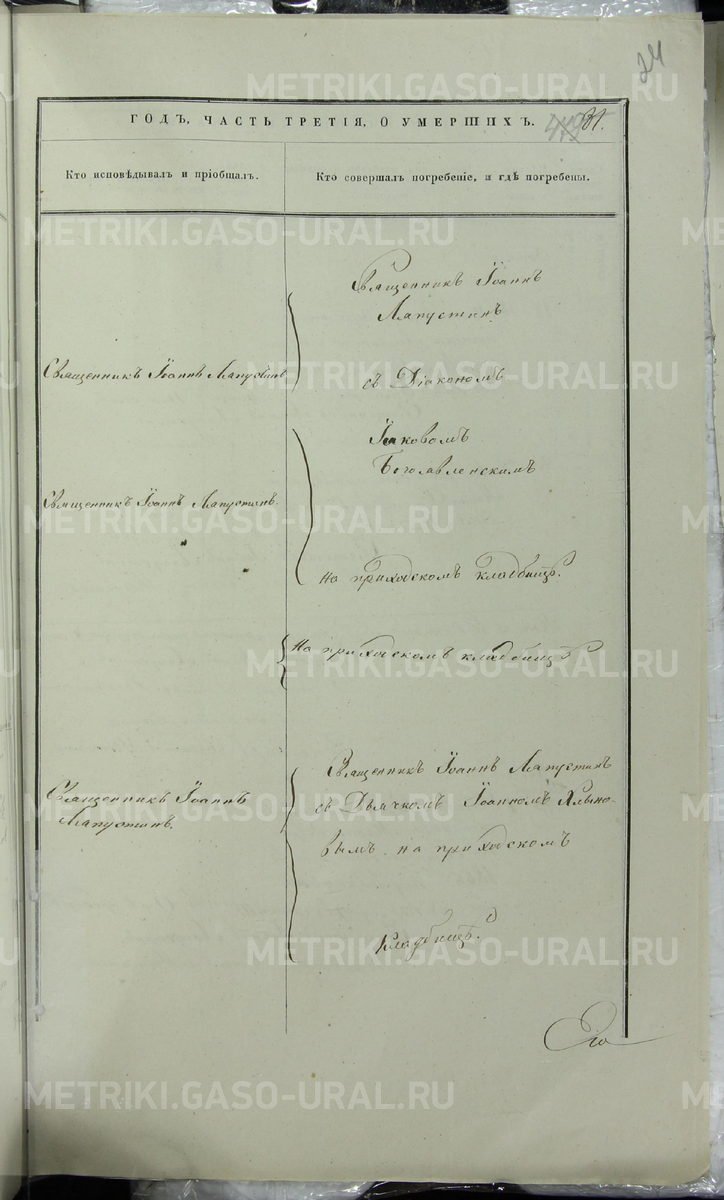 24
ГОДЪ, ЧАСТЬ ТРЕТІЯ, О УМЕРШИХЪ.
31.
Кто исповѣдывалъ и пріобщалъ.
Кто совершалъ погребеніе, и гдѣ погребены.
Священникъ Іоаннъ
Лапустинъ
Священникъ Іоаннъ Лапустинъ
съ Діакономъ
Іаковомъ
Богоявленскимъ
Священникъ Іоаннъ Лапустинъ.
" "
на приходскомъ кладбищѣ.
На приходскомъ кладбищѣ
Священникъ Іоаннъ Лапустинъ
Священникъ Іоаннъ
Лапустинъ.
съ Дьячкомъ Іоанномъ
вымъ на приходскомъ
кладбищѣ.
METRIKI.GASO-URAL.RU